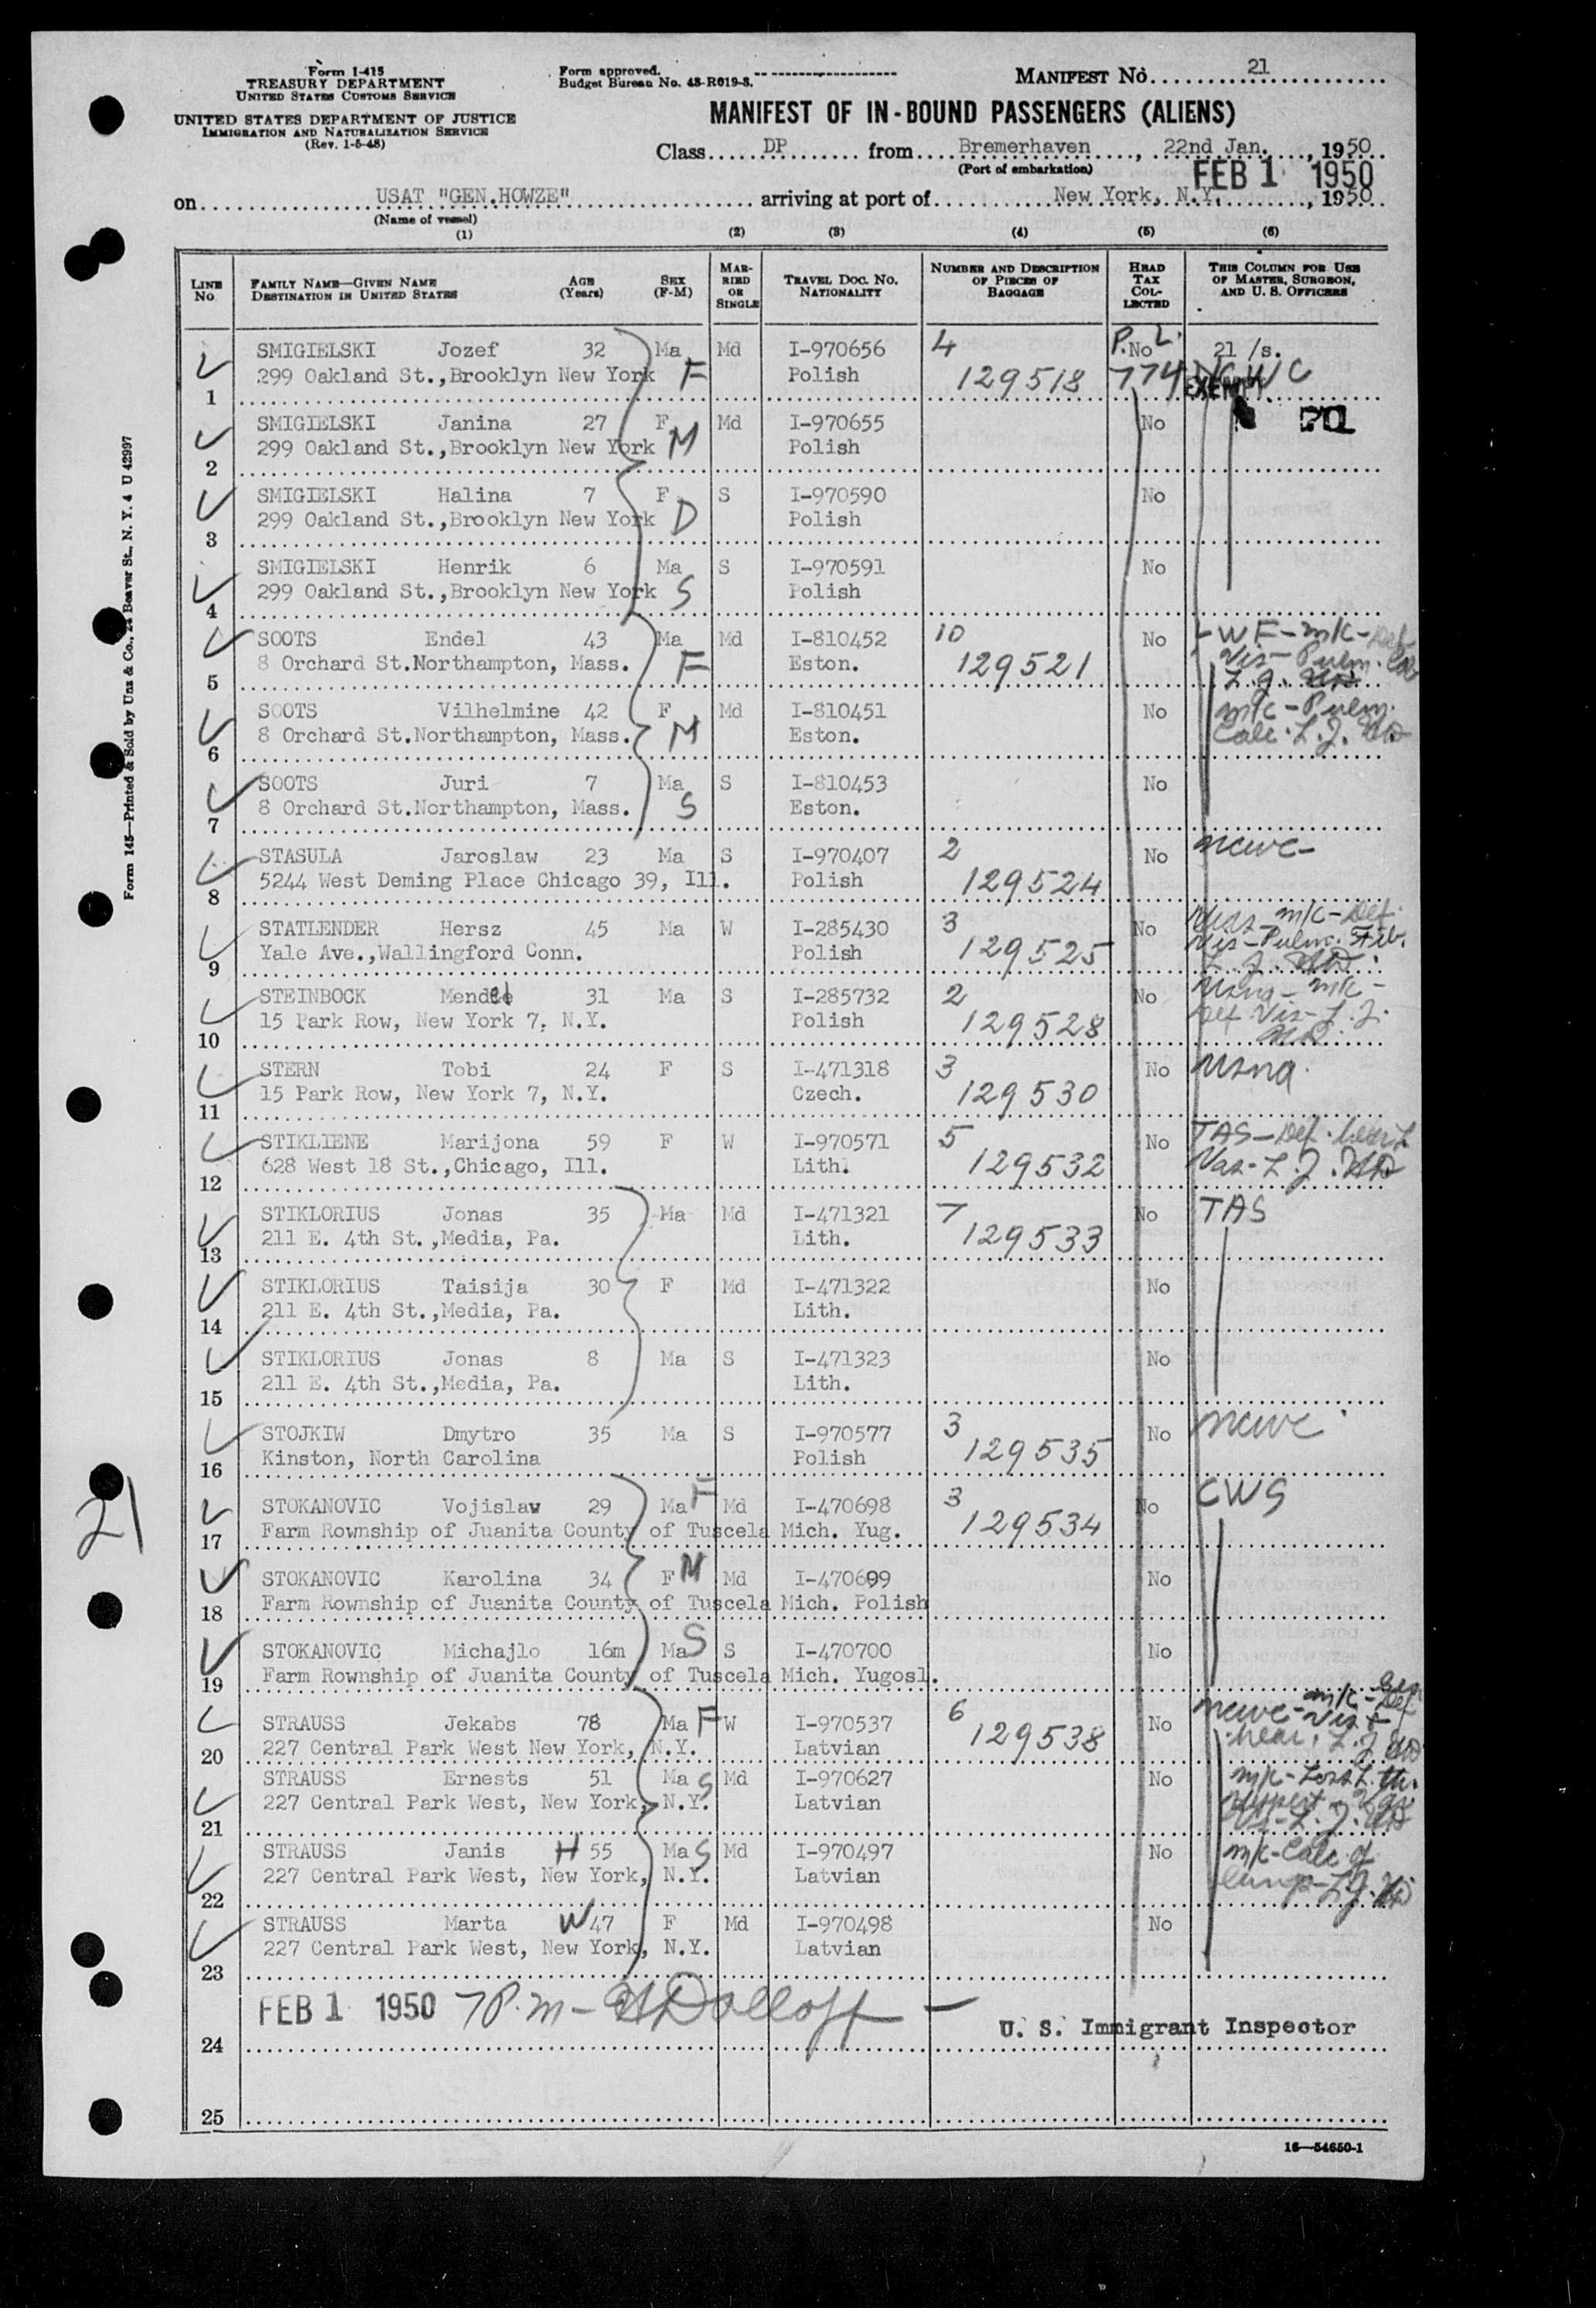 Form I-415
TREASURY DEPARTMENT
UNITED STATES CUSTOMS SERVICE
UNITED STATES DEPARTMENT OF JUSTICE
IMMIGRATION AND NATURALIZATION SERVICE
(Rev. 1-5-48)
Form approved.
Budget Bureau No. 43-R019-3.
MANIFEST No. 21
MANIFEST OF IN-BOUND PASSENGERS (ALIENS)
Class DP from Bremerhaven, 22nd Jan., 1950
(Port of embarkation)
FEB 1 1950
on USAT "GEN.HOWZE" arriving at port of New York, N.Y., 1950
(Name of vessel)
(1) (2) (3) (4) (5) (6)
LINE No. FAMILY NAME—GIVEN NAME DESTINATION IN UNITED STATES AGE (Years) SEX (F-M) MARRIED OR SINGLE TRAVEL DOC. NO. NATIONALITY NUMBER AND DESCRIPTION OF PIECES OF BAGGAGE HEAD TAX COLLECTED THIS COLUMN FOR USE OF MASTER, SURGEON, AND U. S. OFFICERS
SMIGIELSKI Jozef 32 Ma Md I-970656 4 P.L. No 21 /s.
1 299 Oakland St.,Brooklyn New York F Polish 129518 774 EXEMPT NCWC
SMIGIELSKI Janina 27 F Md I-970655 No
2 299 Oakland St.,Brooklyn New York M Polish
SMIGIELSKI Halina 7 F S I-970590 No
3 299 Oakland St.,Brooklyn New York D Polish
SMIGIELSKI Henrik 6 Ma S I-970591 No
4 299 Oakland St.,Brooklyn New York S Polish
SOOTS Endel 43 Ma Md I-810452 10 No WF-m/c-Def
5 8 Orchard St.Northampton, Mass. F Eston. 129521 Vis-Pulm. L.J.
SOOTS Vilhelmine 42 F Md I-810451 No m/c-Pulm.
6 8 Orchard St.Northampton, Mass. M Eston. Calc. L.J.
SOOTS Juri 7 Ma S I-810453 No
7 8 Orchard St.Northampton, Mass. S Eston.
STASULA Jaroslaw 23 Ma S I-970407 2 No ncwc-
8 5244 West Deming Place Chicago 39, Ill. Polish 129524
STATLENDER Hersz 45 Ma W I-285430 3 No m/c-Def.
9 Yale Ave.,Wallingford Conn. Polish 129525 Vis-Pulm. Fib. L.J.
STEINBOCK Mendel 31 Ma S I-285732 2 No Usna-m/c-
10 15 Park Row, New York 7, N.Y. Polish 129528 Def Vis-L.J.
STERN Tobi 24 F S I-471318 3 No Usna.
11 15 Park Row, New York 7, N.Y. Czech. 129530
STIKLIENE Marijona 59 F W I-970571 5 No TAS-Def.
12 628 West 18 St.,Chicago, Ill. Lith. 129532 L.J.
STIKLORIUS Jonas 35 Ma Md I-471321 7 No TAS
13 211 E. 4th St.,Media, Pa. Lith. 129533
STIKLORIUS Taisija 30 F Md I-471322 No
14 211 E. 4th St.,Media, Pa. Lith.
STIKLORIUS Jonas 8 Ma S I-471323 No
15 211 E. 4th St.,Media, Pa. Lith.
STOJKIW Dmytro 35 Ma S I-970577 3 No ncwc
16 Kinston, North Carolina Polish 129535
STOKANOVIC Vojislaw 29 Ma F Md I-470698 3 No CWS
17 Farm Rownship of Juanita County of Tuscela Mich. Yug. 129534
STOKANOVIC Karolina 34 F M Md I-470699 No
18 Farm Rownship of Juanita County of Tuscela Mich. Polish
STOKANOVIC Michajlo 16m Ma S S I-470700 No
19 Farm Rownship of Juanita County of Tuscela Mich. Yugosl.
STRAUSS Jekabs 78 Ma F W I-970537 6 No ncwc-m/c-Def Vis +
20 227 Central Park West New York, N.Y. Latvian 129538 hear. L.J.
STRAUSS Ernests 51 Ma S Md I-970627 No m/c-
21 227 Central Park West, New York, N.Y. Latvian
STRAUSS Janis H 55 Ma S Md I-970497 No m/c-Calc of
22 227 Central Park West, New York, N.Y. Latvian lungs-L.J.
STRAUSS Marta W 47 F Md I-970498 No
23 227 Central Park West, New York, N.Y. Latvian
FEB 1 1950 7 P.m-
24 U. S. Immigrant Inspector
25
16—54650-1
Form 145—Printed & Sold by Unz & Co., 24 Beaver St., N. Y. 4 U 42997
21